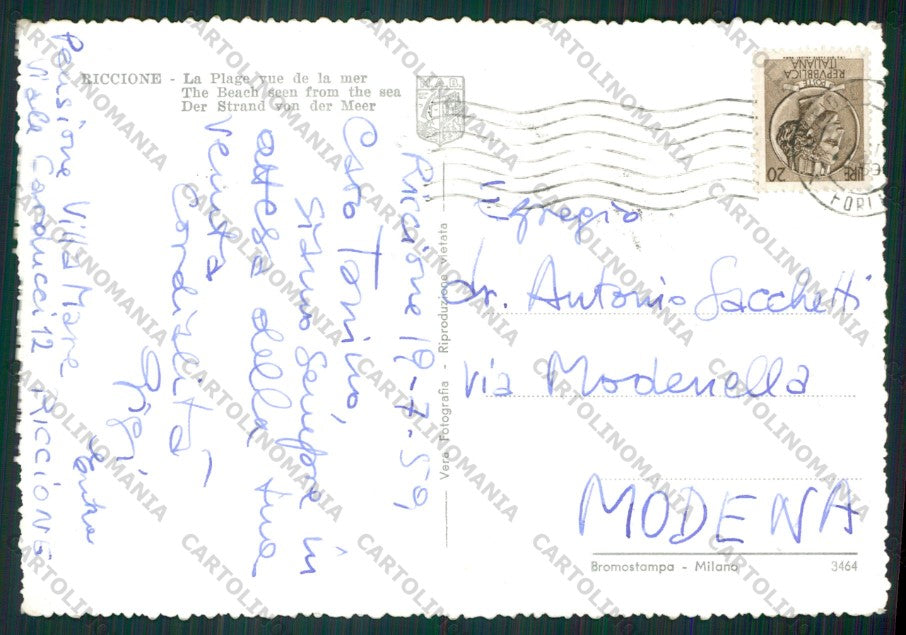 RICCIONE - La Plage vue de la mer
The Beach seen from the sea
Der Strand von der Meer
Riccione 19-7-59,
Caro Tonino,
siamo sempre in
attesa della tua
venuta
Cordialità
Gigi
Pensione Villa Mare
Viale Carducci 12 RICCIONE
Vera Fotografia - Riproduzione vietata
REPVBBLICA
ITALIANA
POSTE
LIRE 20
FORLI
Egregio
dr. Antonio Sacchetti
via Modenella
MODENA
Bromostampa - Milano
3464
CARTOLINOMANIA